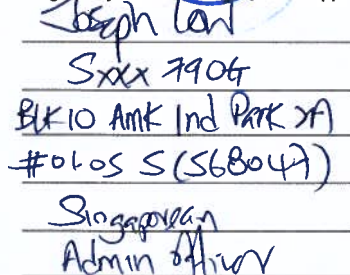 Joseph Low
Sxxx 790G
BLK 10 AMK Ind Park 2A
#01-05 S(568047)
Singaporean
Admin Officer